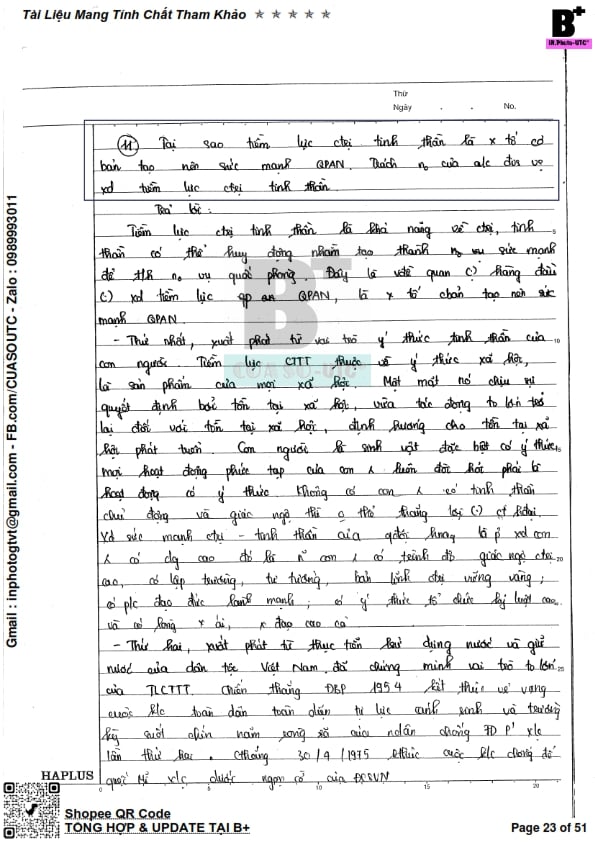 Tài Liệu Mang Tính Chất Tham Khảo ★ ★ ★ ★ ★
B+
IN.Photo-UTC
Thứ
Ngày . . No.
11 Tại sao tiềm lực ctrị tinh thần là x tố cơ
bản tạo nên sức mạnh QPAN. Trách n0 của a/c đvs vc
xd tiềm lực ctrị tinh thần
Trả lời:
Tiềm lực ctrị tinh thần là khả năng về ctrị, tinh
thần có thể huy động nhằm tạo thành sức mạnh
để th n0 vụ quốc phòng. Đây là vđề quan (.) hàng đầu
(.) xd tiềm lực QPAN, là x tố tạo nên sức
mạnh QPAN.
- Thứ nhất, xuất phát từ vai trò ý thức tinh thần của
con người Tiềm lực CTTT thuộc về ý thức xã hội,
là sản phẩm của mọi xã hội. Một mặt nó chịu sự
quyết định bởi tồn tại xã hội, vừa tác động to lớn trở
lại đối với tồn tại xã hội, định hướng cho tồn tại xã
hội phát triển. Con người là sinh vật đặc biệt có ý thức
mọi hoạt động phức tạp của con luôn đòi hỏi phải là
hoạt động có ý thức không có con có tinh thần
chủ động và giác ngộ thì thể thắng lợi (.)
Xd sức mạnh ctrị - tinh thần của là xd con
có cao đó là con có trình độ giác ngộ ctrị
cao, có lập trường, tư tưởng, bản lĩnh ctrị vững vàng;
có đạo đức lành mạnh; có ý thức tổ chức kỷ luật cao
và có lòng ái, đạo cao cả
- Thứ hai, xuất phát từ thực tiễn dựng nước và giữ
nước của dân tộc Việt Nam. đã chứng minh vai trò to lớn
của TLCTTT. Chiến thắng ĐBP 1954 kết thúc vẻ vang
cuộc k/c toàn dân toàn diện tự lực cánh sinh và trường
kỳ suốt chín năm của chống P'
lần thứ . 30/4/1975 cuộc k/c chống đế
quốc Mĩ dưới ngọn cờ của ĐCSVN
B+
CUA SO-UTC
Gmail : inphotogtvt@gmail.com - FB.com/CUASOUTC - Zalo : 0989993011
5
10
15
20
25
HAPLUS
0 5 10 15 20
Shopee QR Code
TỔNG HỢP & UPDATE TẠI B+
Page 23 of 51